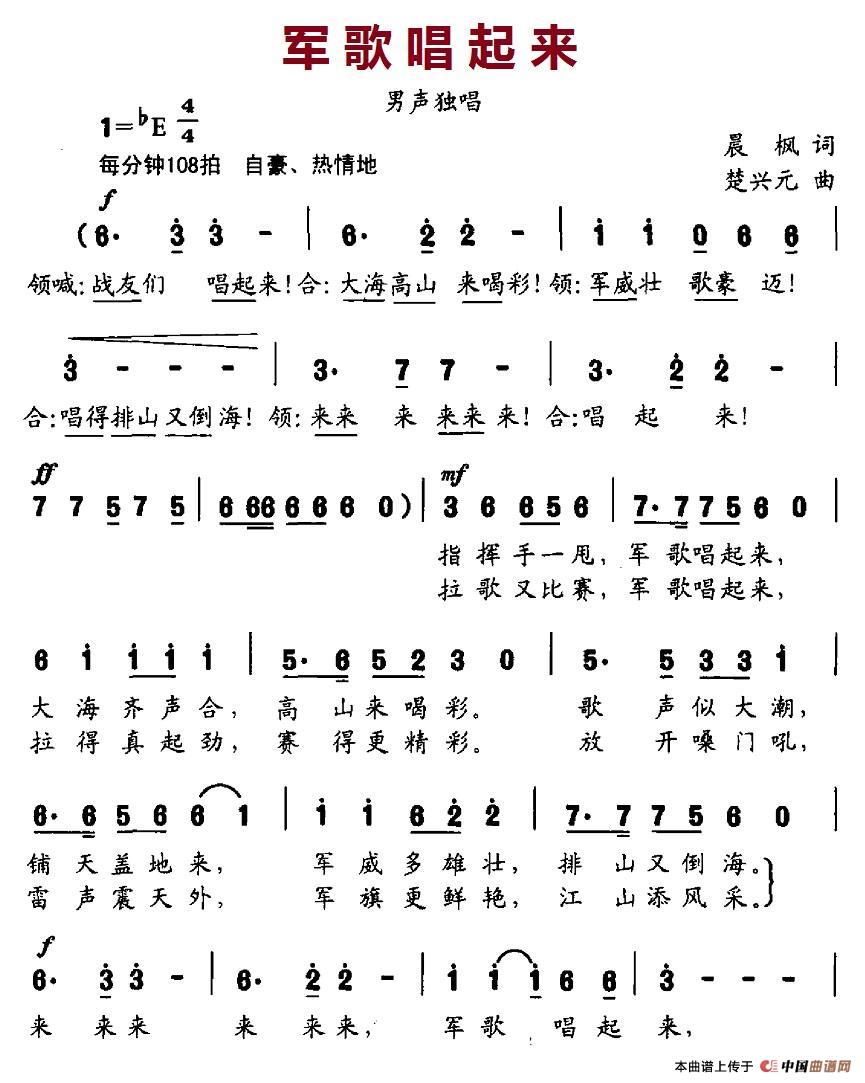 军歌唱起来
男声独唱
1=♭E 4/4
晨 枫 词
每分钟108拍 自豪、热情地
楚兴元 曲
f
(6· 3̇ 3̇ - | 6· 2̇ 2̇ - | 1̇ 1̇ 0 6 6 |
领喊:战友们 唱起来!合:大海高山 来喝彩!领:军威壮 歌豪 迈!
3̇ - - - | 3· 7 7 - | 3· 2̇ 2̇ - |
合:唱得排山又倒海!领:来来 来 来来 来!合:唱 起 来!
ff mf
7 7 5 7 5 | 6 66 6 6 6 0) | 3 6 6 5 6 | 7· 7 7 5 6 0 |
指 挥 手 一 甩, 军 歌唱起来,
拉 歌 又 比 赛, 军 歌唱起来,
6 1̇ 1̇ 1̇ 1̇ | 5· 6 5 2 3 0 | 5· 5 3 3 1̇ |
大 海 齐 声 合, 高 山来喝彩。 歌 声似大潮,
拉 得 真 起 劲, 赛 得更精彩。 放 开嗓门吼,
6· 6 5 6 6 1 | 1̇ 1̇ 6 2̇ 2̇ | 7· 7 7 5 6 0
铺 天盖地来, 军 威 多 雄 壮, 排 山又倒海。
雷 声震天外, 军 旗 更 鲜 艳, 江 山添风采。
f
6· 3̇ 3̇ - | 6· 2̇ 2̇ - | 1̇ 1̇ 1̇ 6 6 | 3̇ - - - |
来 来来 来 来来, 军歌 唱起 来,
本曲谱上传于 中国曲谱网